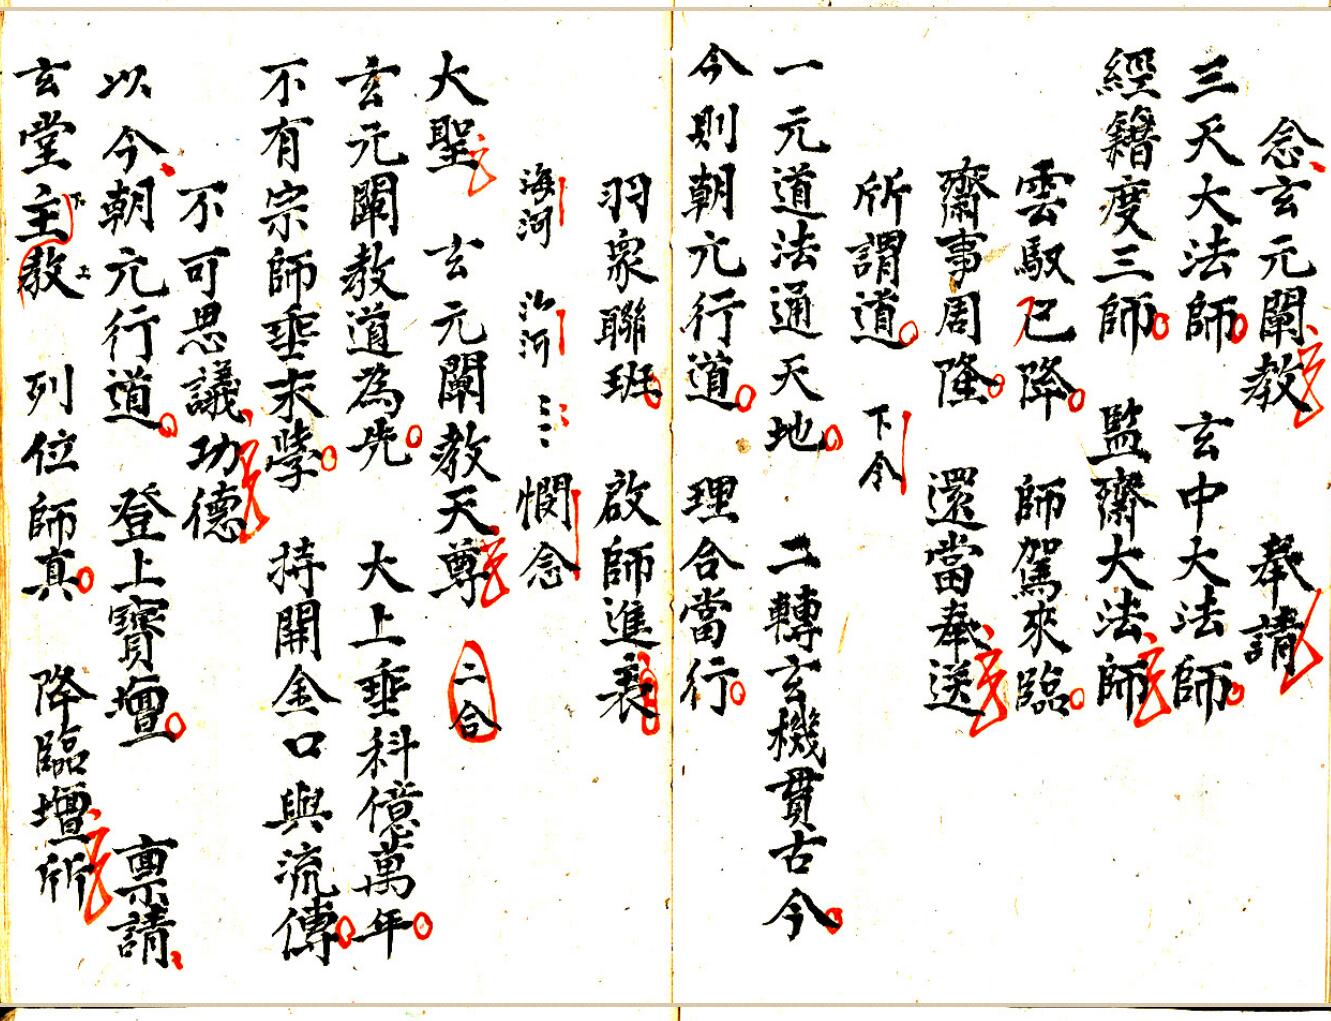 念玄元闡教　奉請
三天大法師　玄中大法師
經籍度三師　監齋大法師
雲馭已降　師駕來臨
齋事周隆　還當奉送
所謂道　下令
一元道法通天地　二轉玄機貫古今
今則朝元行道　理合當行
羽衆聯班　啟師進表
海河　氵河　三三　憫念
大聖　玄元闡教天尊　二合
玄元闡教道為先　大上垂科億萬年
不有宗師垂末學　持開金口與流傳
不可思議功德
以今朝元行道　登上寶壇　禀請
玄堂主下教上　列位師真　降臨壇所